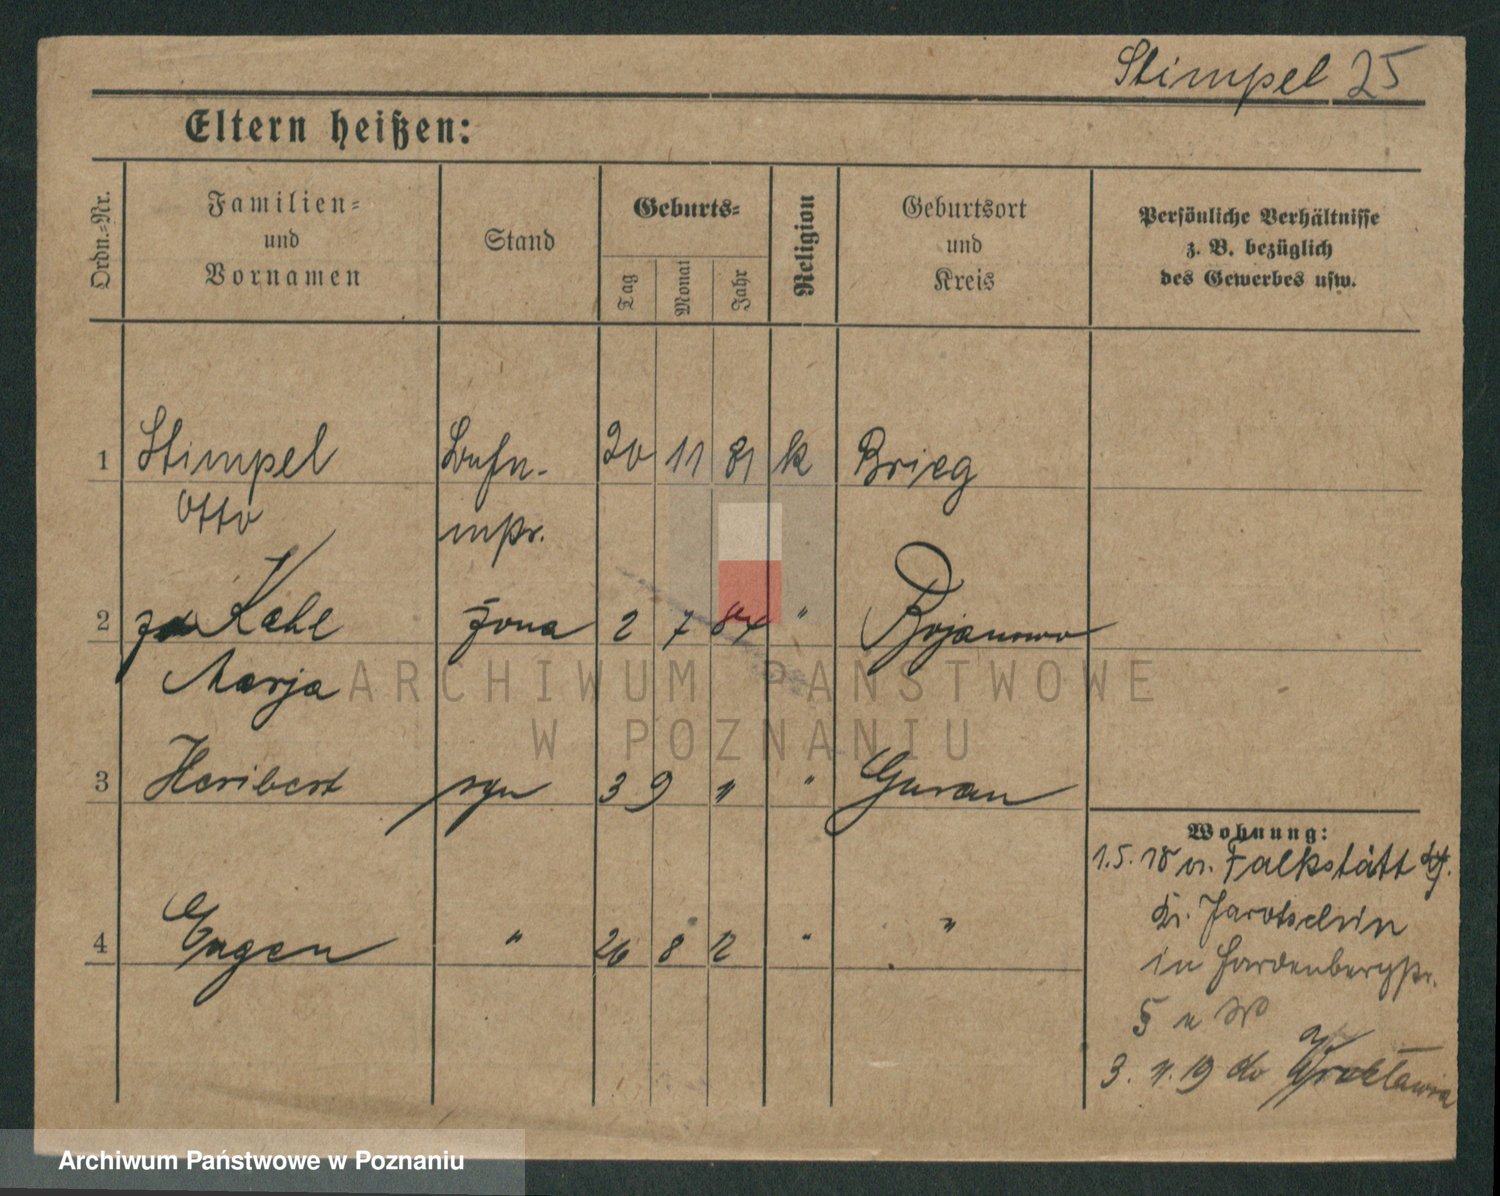 Stimpel 25
Eltern heißen:
Ordn.-Nr.
Familien-
und
Vornamen
Stand
Geburts-
Tag
Monat
Jahr
Religion
Geburtsort
und
Kreis
Persönliche Verhältnisse
z. B. bezüglich
des Gewerbes usw.
1 Stimpel 20 11 81 k Brieg
Otto
2 Kahl żona 2 7 84 " Bojanowo
Marja
3 Heribert syn 3 9 11 " Guran
4 Eugen " 26 8 12 " "
Wohnung:
1.5.18 v. Falkstätt
Kr. Jarotschin
in Hardenbergstr.
5 u W
3. 11. 19 do Wrocławia
ARCHIWUM PAŃSTWOWE
W POZNANIU
Archiwum Państwowe w Poznaniu